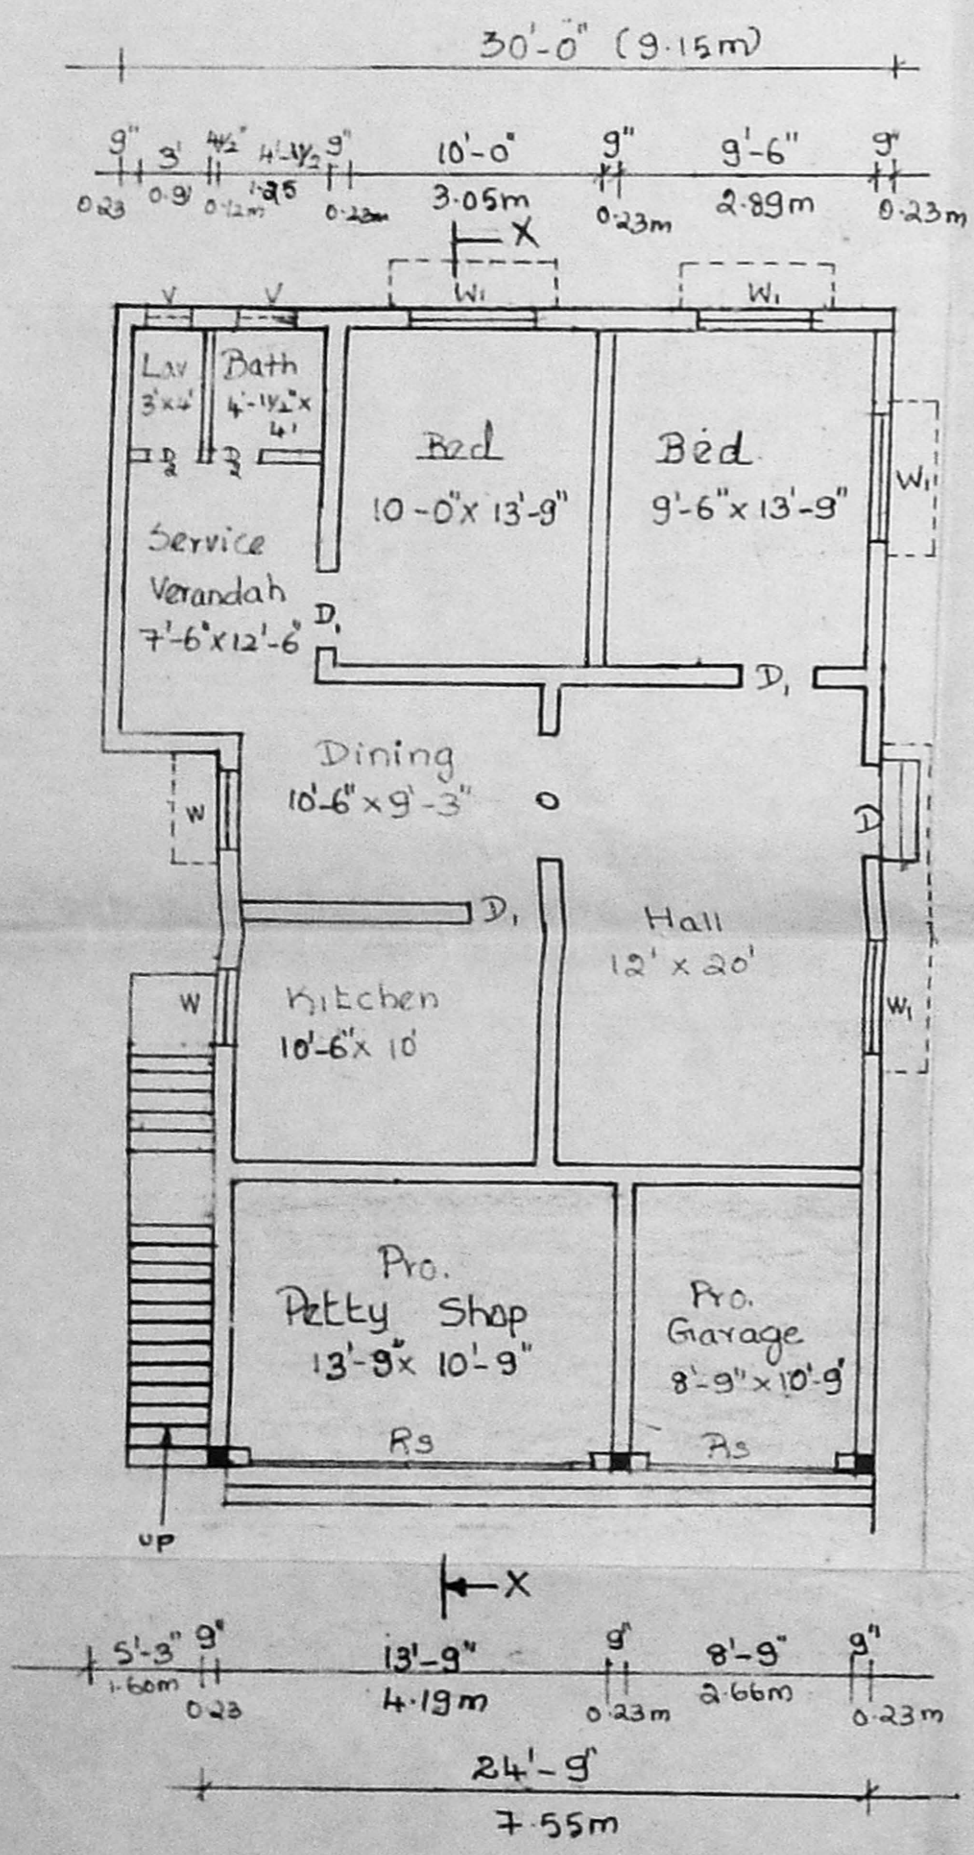 30'-0" (9.15m)
9" 3' 4½" 4'-1½ 9" 10'-0" 9" 9'-6" 9"
0.23 0.9 0.12m 1.25 0.23m 3.05m 0.23m 2.89m 0.23m
X
V V W1 W1
Lav Bath
3'x4' 4'-1½"x
4'
D2 D2
Bed Bed
10-0"x 13'-9" 9'-6"x 13'-9"
W1
Service
Verandah
7'-6"x12'-6"
D1
D1
Dining
10'-6" x 9'-3"
W
D
D1
Hall
12' x 20'
W
Kitchen
10'-6"x 10'
W1
Pro.
Petty Shop
13'-9"x 10'-9"
Pro.
Garage
8'-9"x10'-9'
Rs Rs
up
X
5'-3" 9" 13'-9" 9" 8'-9" 9"
1.60m 0.23 4.19m 0.23m 2.66m 0.23m
24'-9"
7.55m